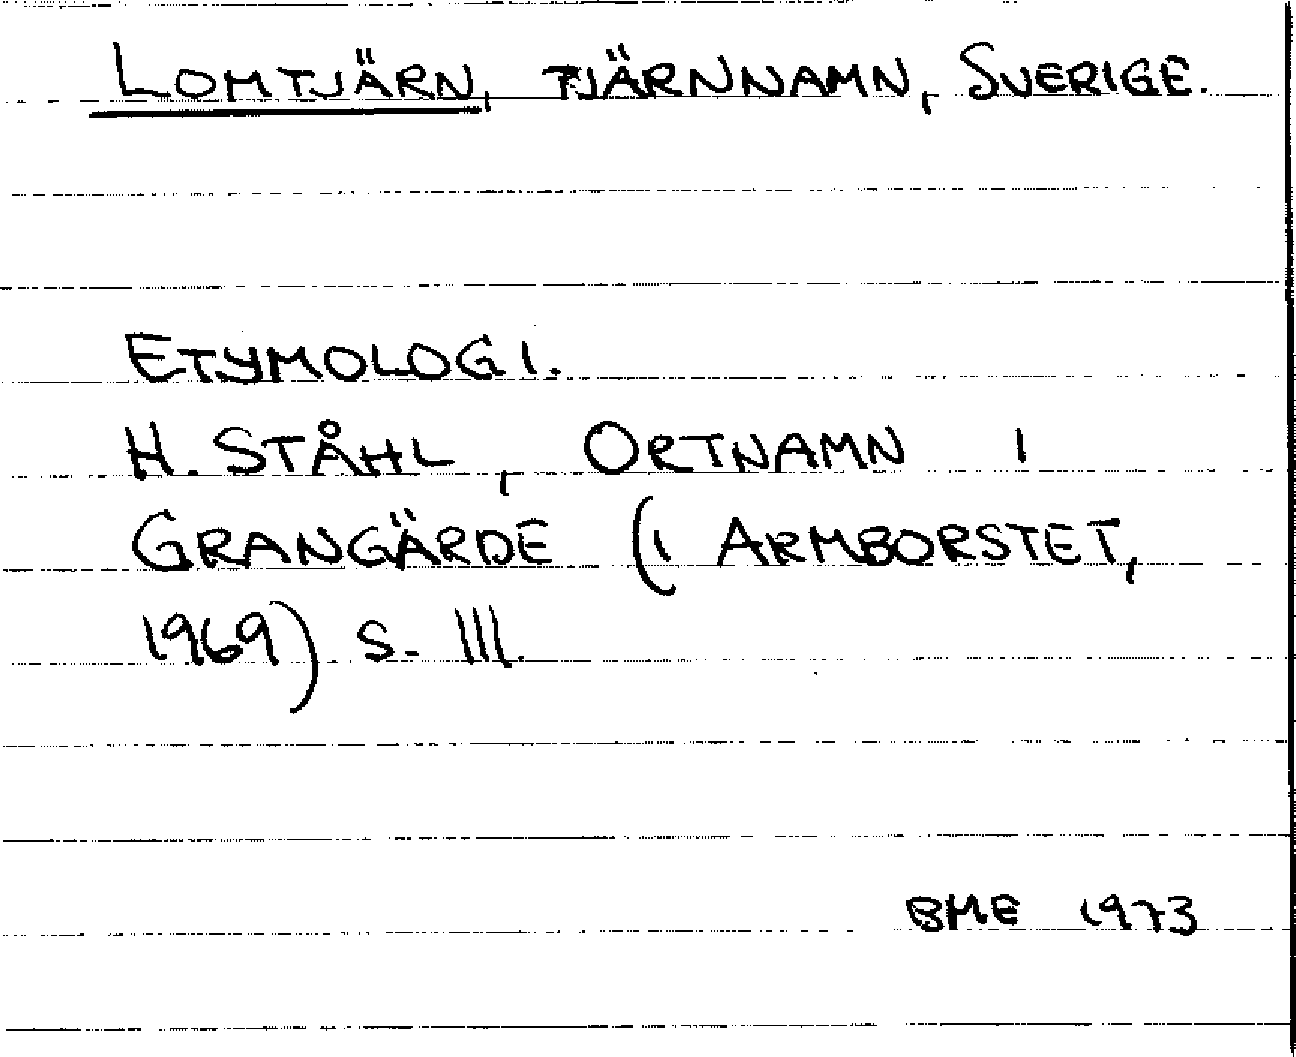 LOMTJÄRN, TJÄRNNAMN, SVERIGE.
ETYMOLOGI.
H. STÅHL, ORTNAMN I
GRANGÄRDE (I ARMBORSTET,
1969) S. 111.
BME 1973